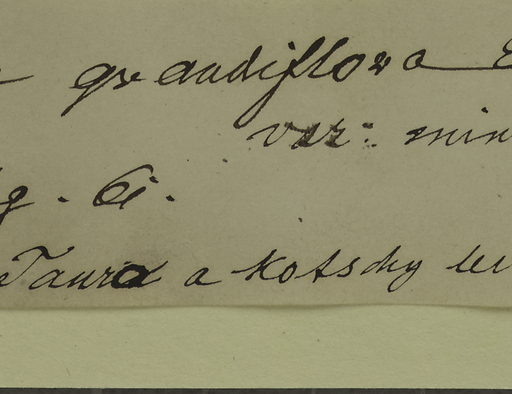 grandiflora
var: min
g. 6.
Taura a Kotschy